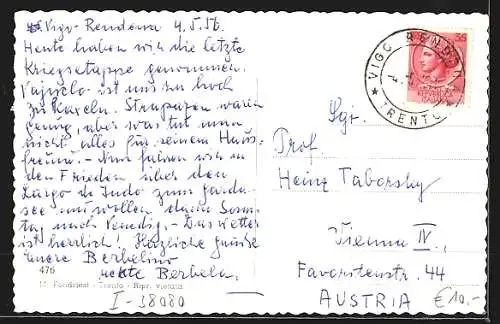 Vigo-Rendena 4.5.56.
Heute haben wir die letzte
Kriegsetappe genommen.
ist uns zu hoch
zu kaxeln. Strapazen waren
genug, aber was tut man
nicht alles für seinen Haus-
freund. - Nun fahren wir in
den Frieden über den
Largo de Indo zum Garda-
see und wollen dann Sonn-
tag nach Venedig. - Das Wetter
ist herrlich! Herzliche Grüsse
Eure Berbelino
Berbeln.
476
Fondriest - Trento - Ripr. vietata
I-38080
VIGO RENDENA
TRENTO
25
REPUBBLICA
ITALIANA
Sgr.
Prof.
Heinz Taborsky
Vienna IV,
Favoritenstr. 44
AUSTRIA
€10,-